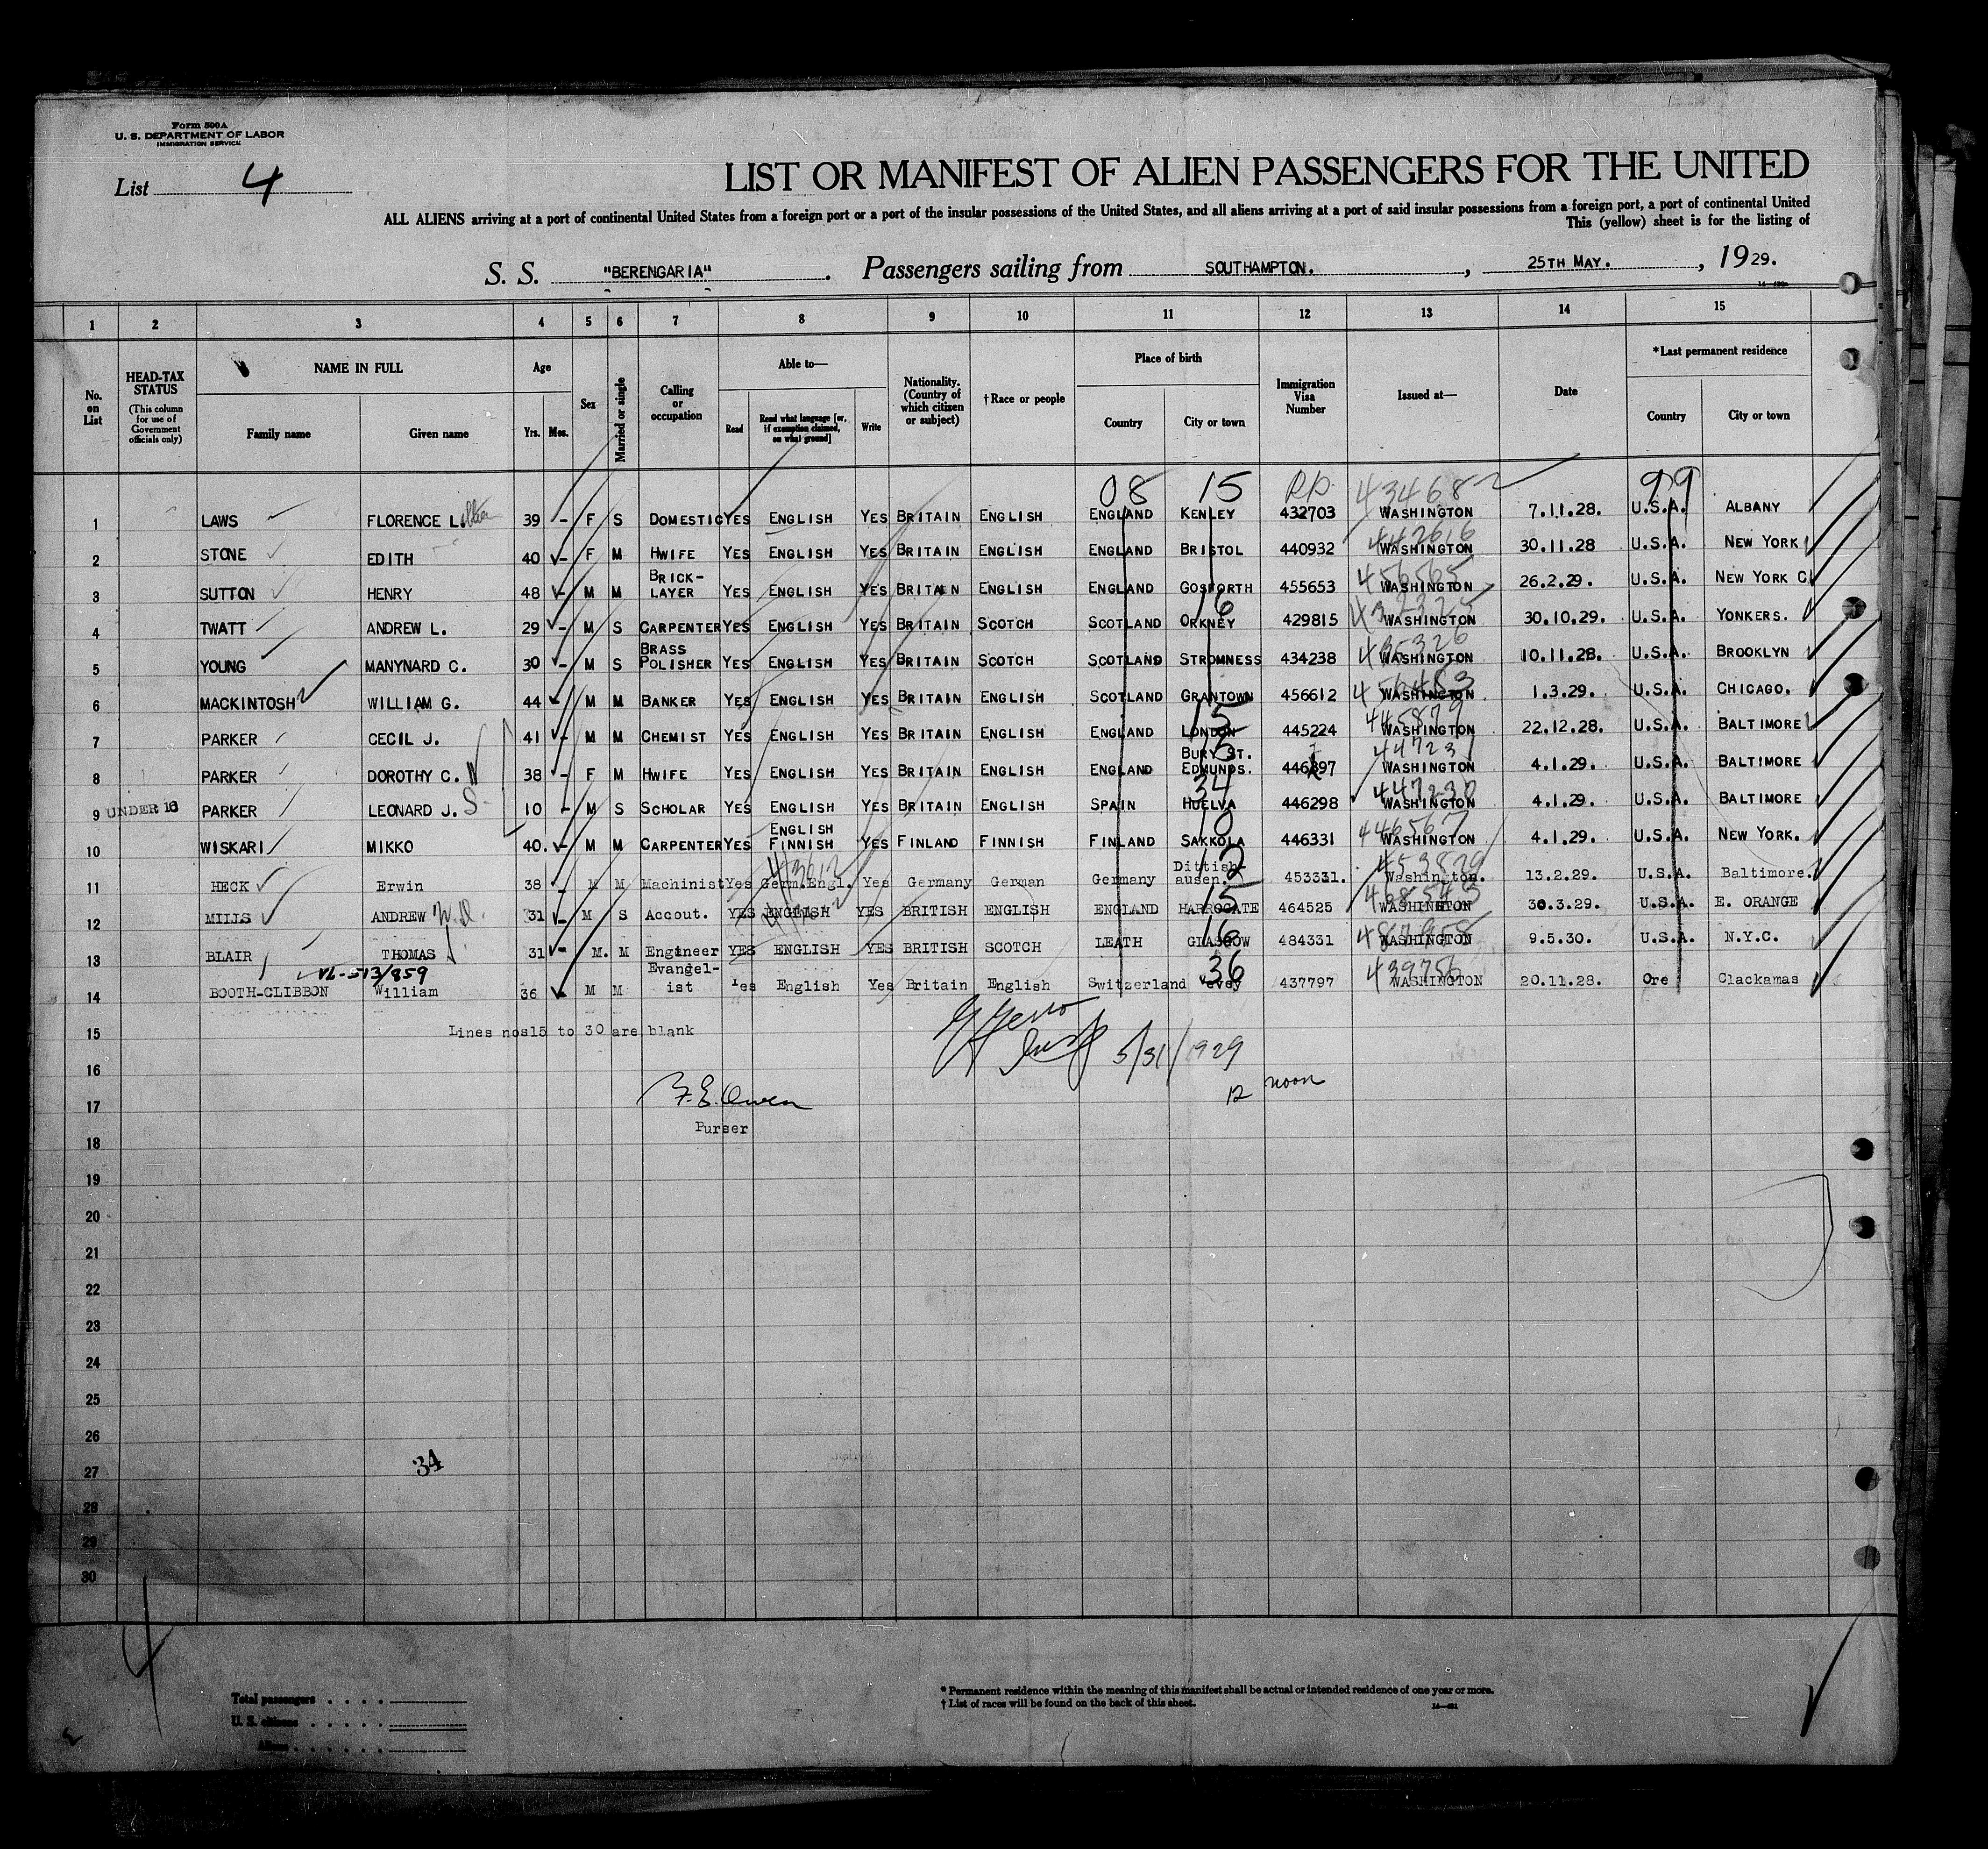 Form 500A
U. S. DEPARTMENT OF LABOR
IMMIGRATION SERVICE
List 4
LIST OR MANIFEST OF ALIEN PASSENGERS FOR THE UNITED
ALL ALIENS arriving at a port of continental United States from a foreign port or a port of the insular possessions of the United States, and all aliens arriving at a port of said insular possessions from a foreign port, a port of continental United
This (yellow) sheet is for the listing of
S. S. "BERENGARIA". Passengers sailing from SOUTHAMPTON. , 25TH MAY. , 1929.
1 2 3 4 5 6 7 8 9 10 11 12 13 14 15
No. on List
HEAD-TAX STATUS (This column for use of Government officials only)
NAME IN FULL
Family name Given name
Age
Yrs. Mos.
Sex
Married or single
Calling or occupation
Able to—
Read Read what language [or, if exemption claimed, on what ground] Write
Nationality. (Country of which citizen or subject)
†Race or people
Place of birth
Country City or town
Immigration Visa Number
Issued at—
Date
*Last permanent residence
Country City or town
08 15 43468 99
1 LAWS FLORENCE L. 39 - F S DOMESTIC YES ENGLISH YES BRITAIN ENGLISH ENGLAND KENLEY 432703 WASHINGTON 7.11.28. U.S.A. ALBANY
442616
2 STONE EDITH 40 - F M HWIFE YES ENGLISH YES BRITAIN ENGLISH ENGLAND BRISTOL 440932 WASHINGTON 30.11.28 U.S.A. NEW YORK
456565
3 SUTTON HENRY 48 - M M BRICK-LAYER YES ENGLISH YES BRITAIN ENGLISH ENGLAND GOSFORTH 455653 WASHINGTON 26.2.29. U.S.A. NEW YORK C.
16
4 TWATT ANDREW L. 29 - M S CARPENTER YES ENGLISH YES BRITAIN SCOTCH SCOTLAND ORKNEY 429815 WASHINGTON 30.10.29. U.S.A. YONKERS.
5 YOUNG MANYNARD C. 30 - M S BRASS POLISHER YES ENGLISH YES BRITAIN SCOTCH SCOTLAND STROMNESS 434238 WASHINGTON 10.11.28. U.S.A. BROOKLYN
6 MACKINTOSH WILLIAM G. 44 - M M BANKER YES ENGLISH YES BRITAIN ENGLISH SCOTLAND GRANTOWN 456612 WASHINGTON 1.3.29. U.S.A. CHICAGO.
15 445879
7 PARKER CECIL J. 41 - M M CHEMIST YES ENGLISH YES BRITAIN ENGLISH ENGLAND LONDON 445224 WASHINGTON 22.12.28. U.S.A. BALTIMORE
447231
8 PARKER DOROTHY C. W 38 - F M HWIFE YES ENGLISH YES BRITAIN ENGLISH ENGLAND BURY ST. EDMUNDS. 446297 WASHINGTON 4.1.29. U.S.A. BALTIMORE
34 447230
9 UNDER 16 PARKER LEONARD J. S 10 - M S SCHOLAR YES ENGLISH YES BRITAIN ENGLISH SPAIN HUELVA 446298 WASHINGTON 4.1.29. U.S.A. BALTIMORE
10 446567
10 WISKARI MIKKO 40. - M M CARPENTER YES ENGLISH FINNISH YES FINLAND FINNISH FINLAND SAKKOLA 446331 WASHINGTON 4.1.29. U.S.A. NEW YORK.
12 453829
11 HECK Erwin 38 - M M Machinist Yes Germ.Engl. Yes Germany German Germany Dittish-ausen. 453331. Washington. 13.2.29. U.S.A. Baltimore.
15
12 MILLS ANDREW 31 - M S Accout. YES ENGLISH YES BRITISH ENGLISH ENGLAND HARROGATE 464525 WASHINGTON 30.3.29. U.S.A. E. ORANGE
16
13 BLAIR THOMAS 31 - M. M Engineer YES ENGLISH YES BRITISH SCOTCH LEATH GLASGOW 484331 WASHINGTON 9.5.30. U.S.A. N.Y.C.
VL-513/859 36 439756
14 BOOTH-CLIBBON William 36 - M M Evangel-ist Yes English Yes Britain English Switzerland Vevey 437797 WASHINGTON 20.11.28. Ore Clackamas
15 Lines nos15 to 30 are blank
5/31/1929
16
12 noon
17 F.E. Owen
Purser
18
19
20
21
22
23
24
25
26
27 34
28
29
30
4
Total passengers
U. S. citizens
Aliens
* Permanent residence within the meaning of this manifest shall be actual or intended residence of one year or more.
† List of races will be found on the back of this sheet.